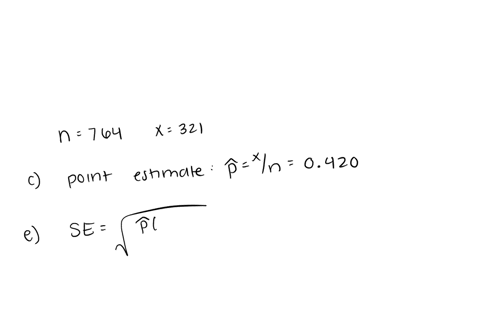 n = 764 x = 321
c) point estimate : p̂ = x/n = 0.420
e) SE = √ p̂(